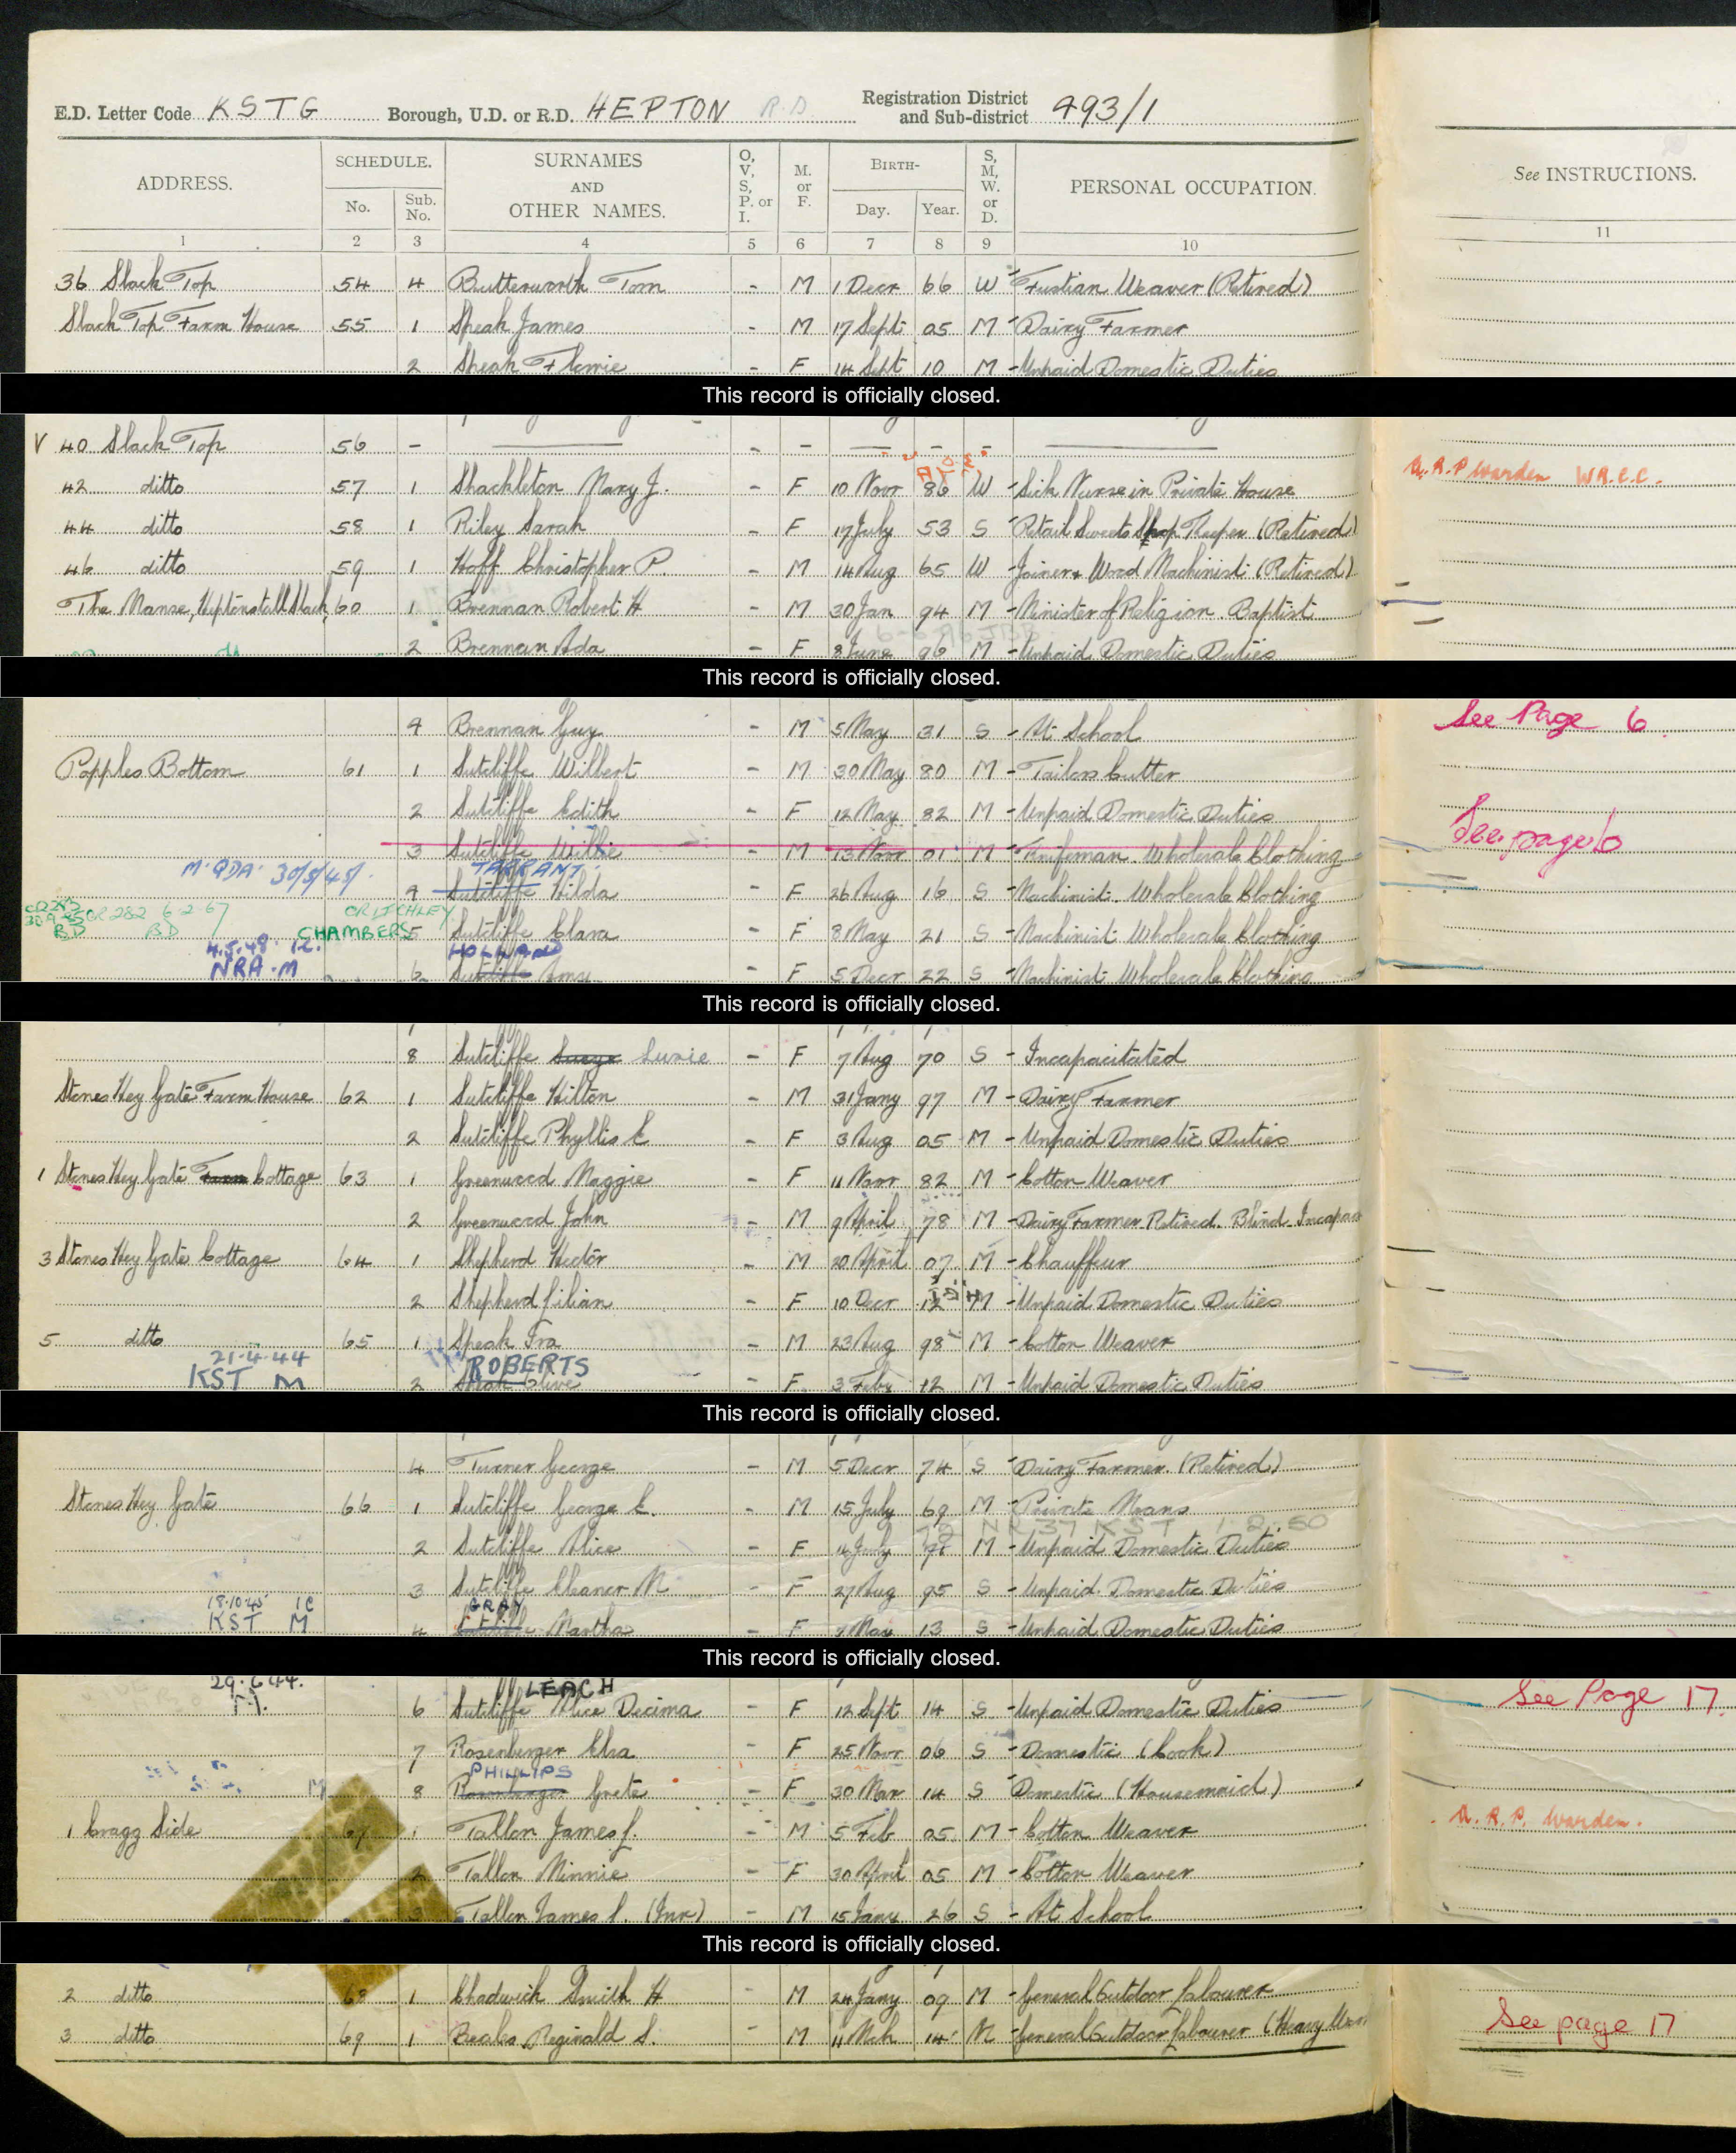 E.D. Letter Code KSTG Borough, U.D. or R.D. HEPTON R.D. Registration District and Sub-district 493/1
ADDRESS. SCHEDULE. No. Sub. No. SURNAMES AND OTHER NAMES. O, V, S, P. or I. M. or F. BIRTH- Day. Year. S, M, W. or D. PERSONAL OCCUPATION. See INSTRUCTIONS.
1 2 3 4 5 6 7 8 9 10 11
36 Slack Top 54 4 Butterworth Tom - M 1 Decr 66 W Fustian Weaver (Retired)
Slack Top Farm House 55 1 Speak James - M 17 Sept 05 M Dairy Farmer
2 Speak Florrie - F 14 Sept 10 M Unpaid Domestic Duties
This record is officially closed.
V 40 Slack Top 56 - - - - -
42 ditto 57 1 Shackleton Mary J. - F 10 Novr 86 W Sick Nurse in Private House A.R.P Warden W.R.C.C.
44 ditto 58 1 Riley Sarah - F 17 July 53 S Retail Sweets Shop Keeper (Retired)
46 ditto 59 1 Hoff Christopher P. - M 14 Aug 65 W Joiner & Wood Machinist (Retired)
The Manse, Heptonstall Slack 60 1 Brennan Robert H - M 30 Jan 94 M Minister of Religion Baptist
2 Brennan Ada - F 8 June 96 M Unpaid Domestic Duties
This record is officially closed.
4 Brennan Guy - M 5 May 31 S At School See Page 6
Popples Bottom 61 1 Sutcliffe Wilbert - M 30 May 80 M Tailors Cutter
2 Sutcliffe Edith - F 12 May 82 M Unpaid Domestic Duties
3 Sutcliffe Willie - M 13 Novr 01 M Knifeman Wholesale Clothing See page 6
M. QDA. 30/5/45. TARRANT
4 Sutcliffe Hilda F 26 Aug 16 S Machinist Wholesale Clothing
CR 282 6-2-67 BD BD CRITCHLEY
CHAMBERS 5 Sutcliffe Clara - F 8 May 21 S Machinist Wholesale Clothing
4.5.48. HOLLAND
NRA.M 6 Sutcliffe Amy - F 5 Decr 22 S Machinist Wholesale Clothing
This record is officially closed.
8 Sutcliffe Susie - F 7 Aug 70 S Incapacitated
Stones Hey Gate Farm House 62 1 Sutcliffe Hilton - M 31 Jany 97 M Dairy Farmer
2 Sutcliffe Phyllis E - F 3 Aug 05 M Unpaid Domestic Duties
1 Stones Hey Gate Farm Cottage 63 1 Greenwood Maggie - F 11 Novr 82 M Cotton Weaver
2 Greenwood John - M 9 April 78 M Dairy Farmer Retired. Blind Incapac
3 Stones Hey Gate Cottage 64 1 Shepherd Hector - M 20 April 07 M Chauffeur
2 Shepherd Lilian - F 10 Decr 12 M Unpaid Domestic Duties
5 ditto 65 1 Speak Ira - M 23 Aug 98 M Cotton Weaver
21.4.44 ROBERTS
KST M 2 Speak Olive - F 3 Feby 12 M Unpaid Domestic Duties
This record is officially closed.
4 Turner George - M 5 Decr 74 S Dairy Farmer. (Retired)
Stones Hey Gate 66 1 Sutcliffe George E. - M 15 July 69 M Private Means
NR 37 KST 1.2.50
2 Sutcliffe Alice - F July M Unpaid Domestic Duties
3 Sutcliffe Eleanor M - F 27 Aug 95 S Unpaid Domestic Duties
18.10.45 GRAY
KST M 4 Sutcliffe Martha - F May 13 S Unpaid Domestic Duties
This record is officially closed.
29.6.44. LEACH
6 Sutcliffe Alice Decima - F 12 Sept 14 S Unpaid Domestic Duties See Page 17.
7 Rosenberger Elsa - F 25 Novr 06 S Domestic (Cook)
PHILLIPS
M 8 Rosenberger Grete - F 30 Mar 14 S Domestic (Housemaid)
1 Cragg Side 67 1 Tallon James L. - M 5 Feb 05 M Cotton Weaver A.R.P. Warden.
2 Tallon Minnie - F 30 April 05 M Cotton Weaver
3 Tallon James L. (Jnr) - M 15 Jany 26 S At School
This record is officially closed.
2 ditto 68 1 Chadwick Smith H - M 24 Jany 09 M General Outdoor Labourer
3 ditto 69 1 Beales Reginald S. - M 11 Mch 14 M General Outdoor Labourer (Heavy See page 17